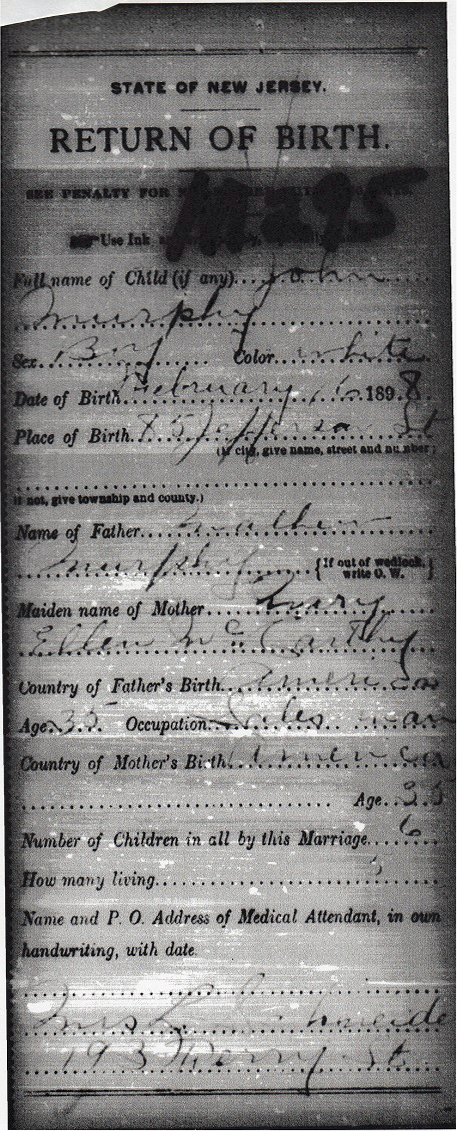 STATE OF NEW JERSEY.
RETURN OF BIRTH.
SEE PENALTY FOR
M295
Use Ink
Full name of Child (if any) John
Murphy
Sex Boy Color white
Date of Birth February 16 1898
Place of Birth 85 Jefferson St
(If city, give name, street and number;
if not, give township and county.)
Name of Father
Murphy {If out of wedlock, write O. W.}
Maiden name of Mother Mary
Ellen McCarthy
Country of Father's Birth America
Age 35 Occupation Sales man
Country of Mother's Birth America
Age 35
Number of Children in all by this Marriage 6
How many living
Name and P. O. Address of Medical Attendant, in own
handwriting, with date.
Mrs
193 St